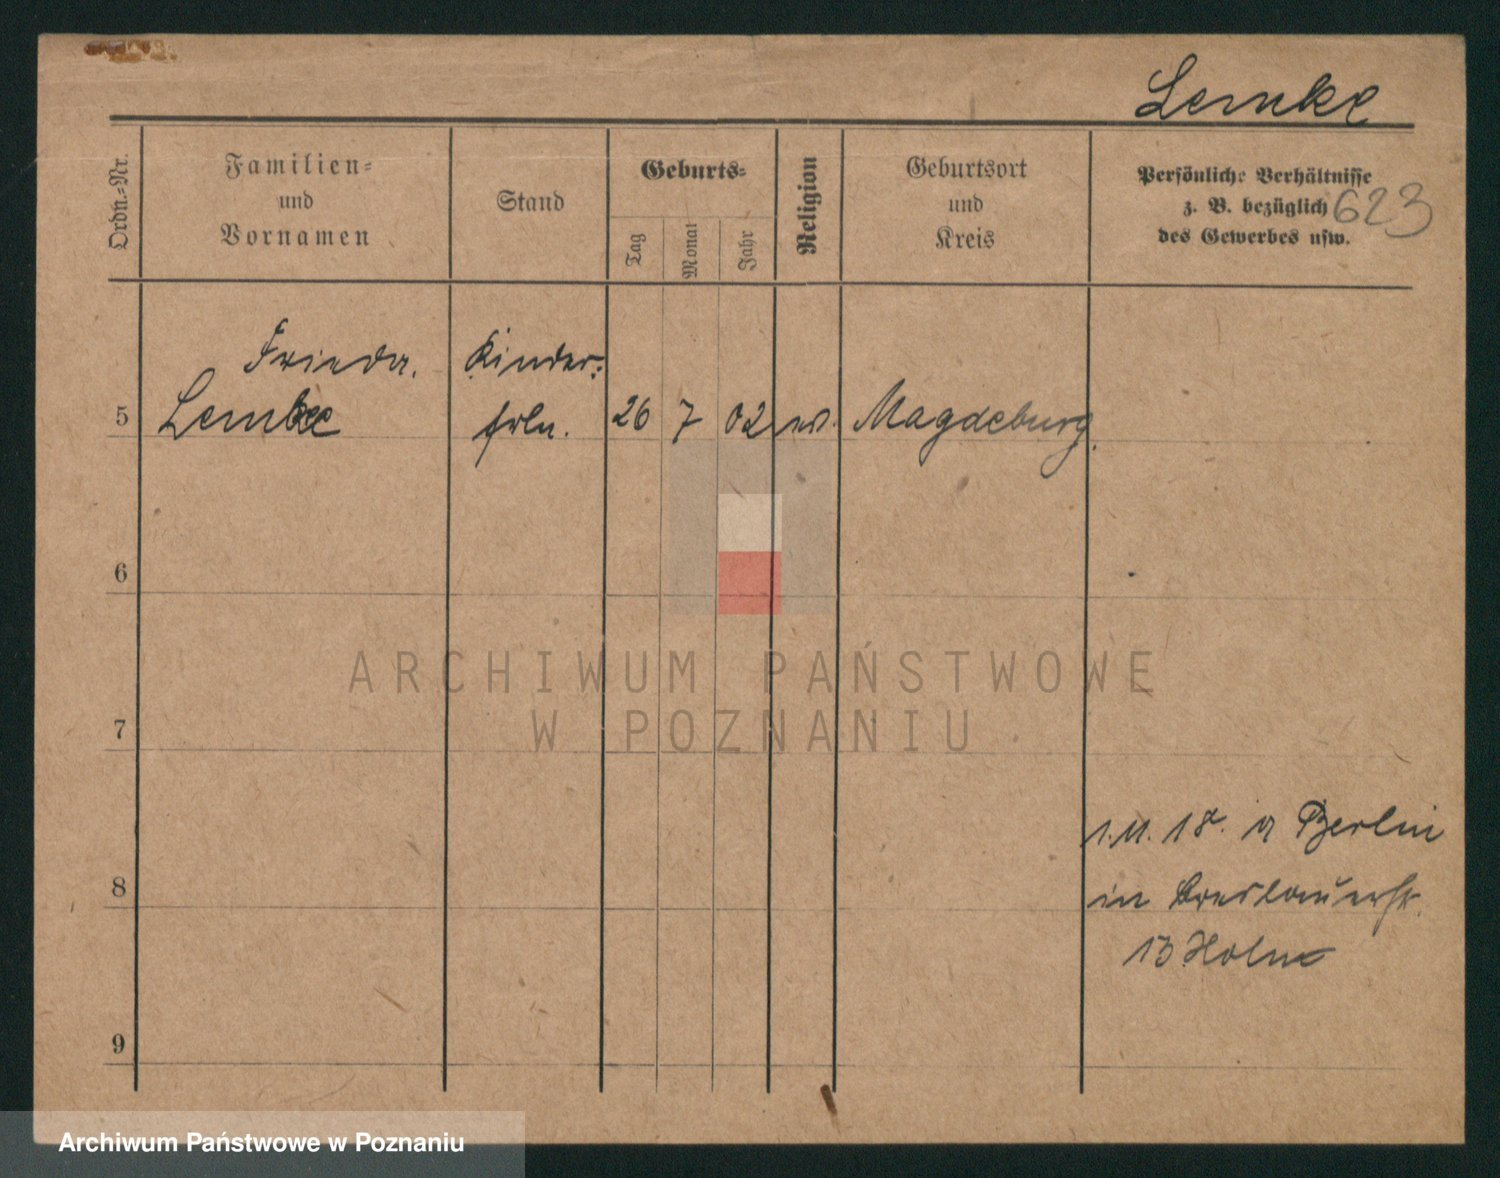 Lemke
Ordn.-Nr.
Familien-
und
Vornamen
Stand
Geburts-
Tag
Monat
Jahr
Religion
Geburtsort
und
Kreis
Persönliche Verhältnisse
z. B. bezüglich
des Gewerbes usw.
623
Frieda.
Kinder-
5 Lemke
frln. 26 7 02 ev. Magdeburg.
6
7
8
9
1.11.18. Berlin
in Breslauerstr.
13
ARCHIWUM PAŃSTWOWE
W POZNANIU
Archiwum Państwowe w Poznaniu